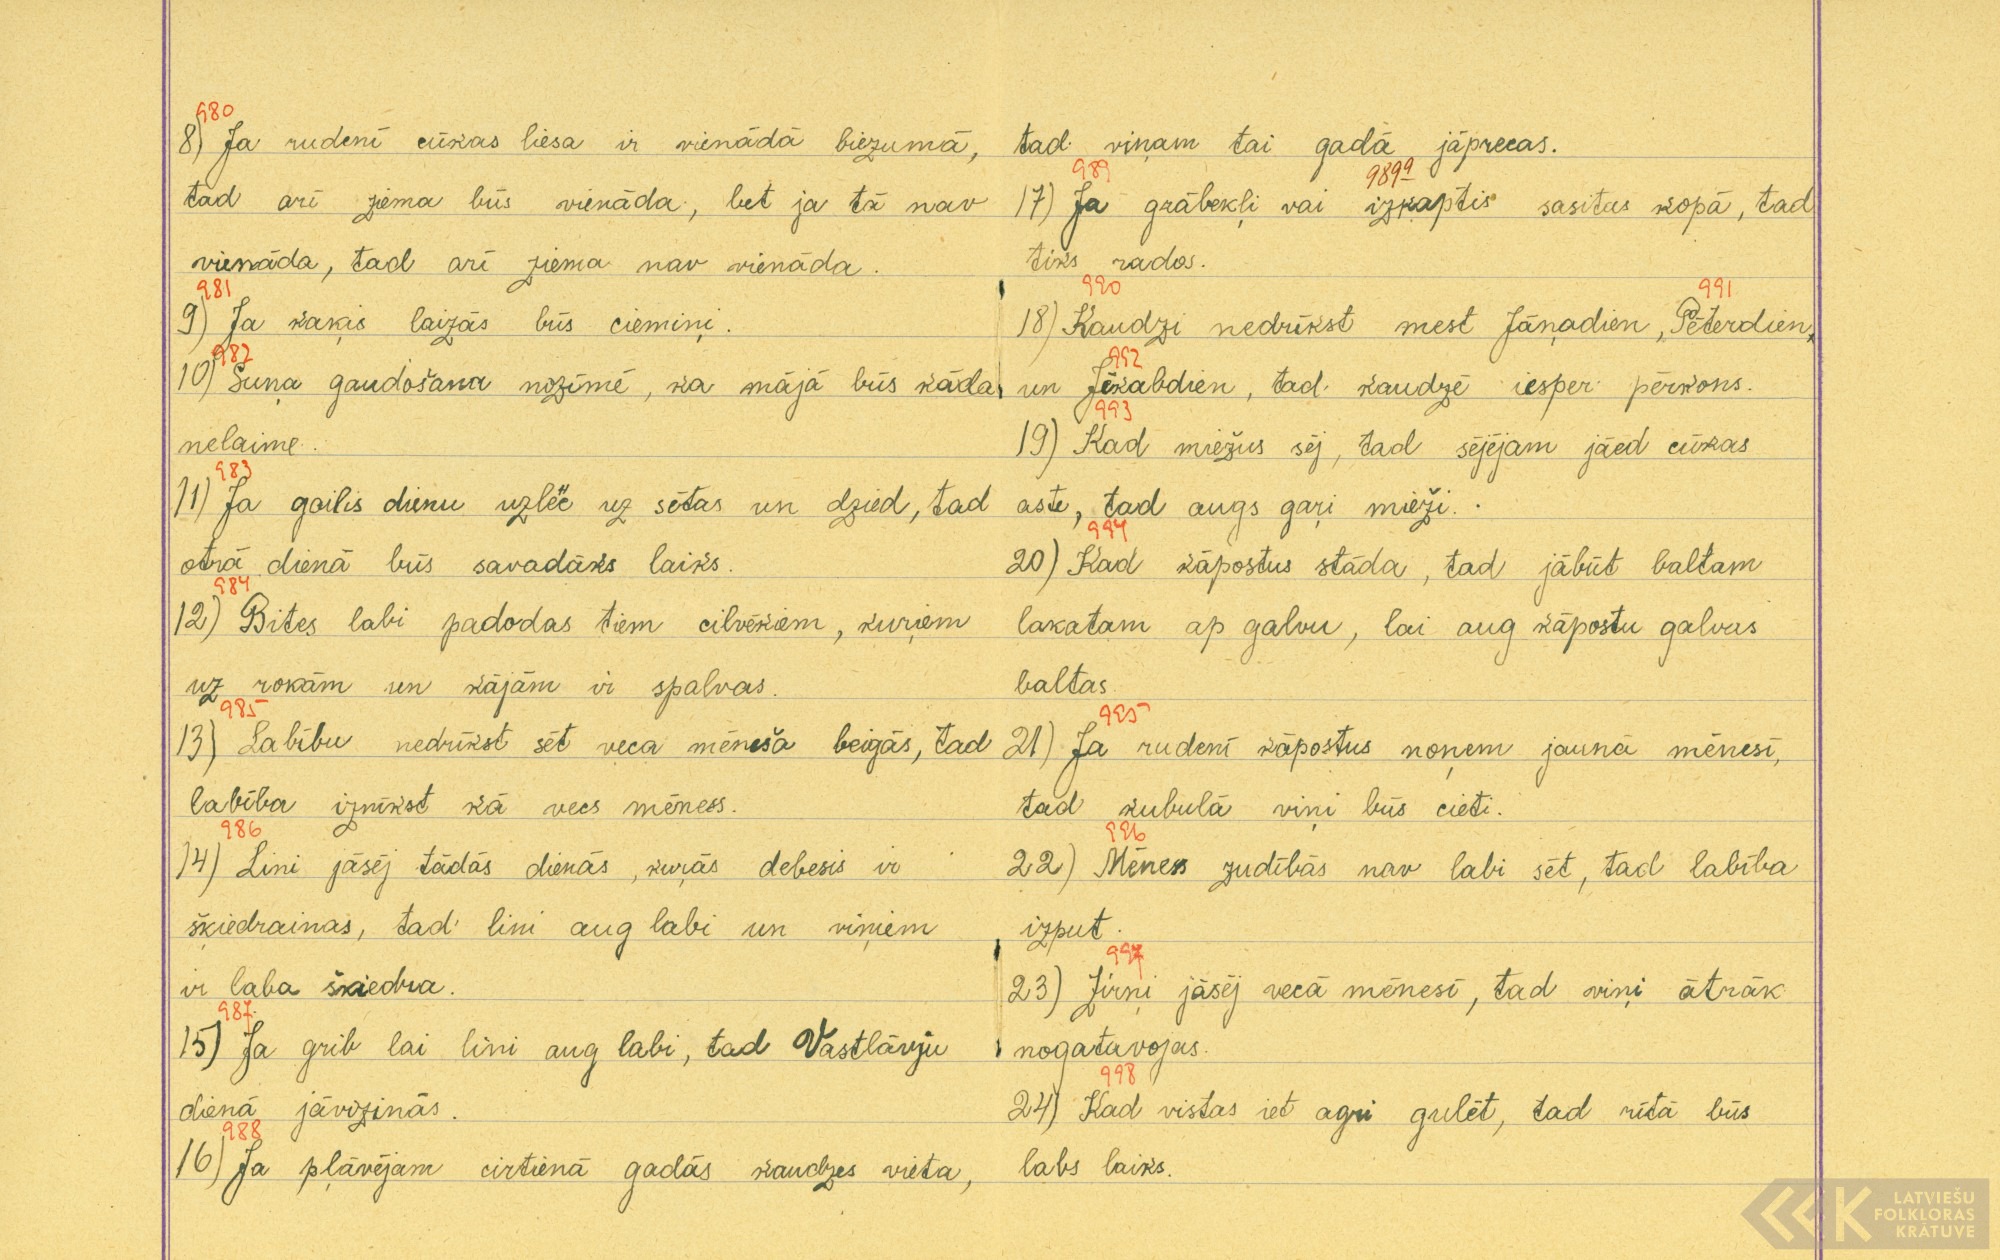 980
8) Ja rudenī cūkas liesa ir vienādā biezumā,
tad arī ziema būs vienāda, bet ja tā nav
vienāda, tad arī ziema nav vienāda.
981
9) Ja kaķis laizās būs ciemiņi.
982
10) Suņa gaudošana nozīmē, ka mājā būs kāda
nelaime.
983
11) Ja gailis dienu uzlēc uz sētas un dzied, tad
otrā dienā būs savadāks laiks.
984
12) Bites labi padodas tiem cilvēkiem, kuŗiem
uz rokām un kājām ir spalvas.
985
13) Labību nedrīkst sēt veca mēneša beigās, tad
labība iznīkst kā vecs mēness.
986
14) Lini jāsēj tādās dienās, kuŗās debesis ir
šķiedrainas, tad lini aug labi un viņiem
ir laba šķiedra.
987.
15) Ja grib lai lini aug labi, tad Vastlāvju
dienā jāvizinās.
988
16) Ja pļāvējam cirtienā gadās kaudzes vieta,
tad viņam tai gadā jāprecas.
989 989a
17) Ja grābekļi vai izkaptis sasitas kopā, tad
tiks rados.
990 991
18) Kaudzi nedrīkst mest Jāņadien, Pēterdien,
992
un Jēkabdien, tad kaudzē iesper pērkons.
993
19) Kad miežus sēj, tad sējējam jāed cūkas
aste, tad augs gaŗi mieži.
994
20) Kad kāpostus stāda, tad jābūt baltam
lakatam ap galvu, lai aug kāpostu galvas
baltas
995
21) Ja rudenī kāpostus noņem jaunā mēnesī,
tad kubulā viņi būs cieti.
996
22) Mēness zudībās nav labi sēt, tad labība
izput.
997
23) Zirņi jāsēj vecā mēnesī, tad viņi ātrāk
nogatavojas.
998
24) Kad vistas iet agri gulēt, tad rītā būs
labs laiks.
LATVIEŠU
FOLKLORAS
KRĀTUVE